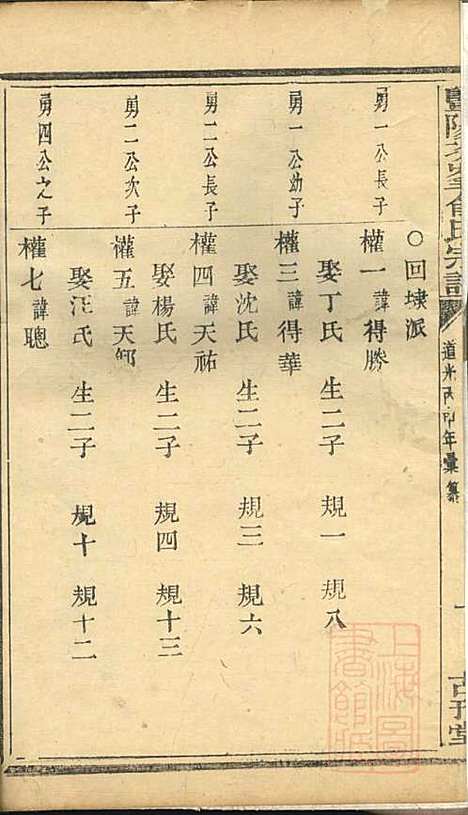 暨陽次峯俞氏宗譜
道光丙申年彙纂
古孝堂
○回埭派
勇一公長子
權一諱得勝
娶丁氏 生二子 規一 規八
勇一公幼子
權三諱得華
娶沈氏 生二子 規三 規六
勇二公長子
權四諱天祐
娶楊氏 生二子 規四 規十三
勇二公次子
權五諱天
娶汪氏 生二子 規十 規十二
勇四公之子
權七諱聰
上海圖書館藏